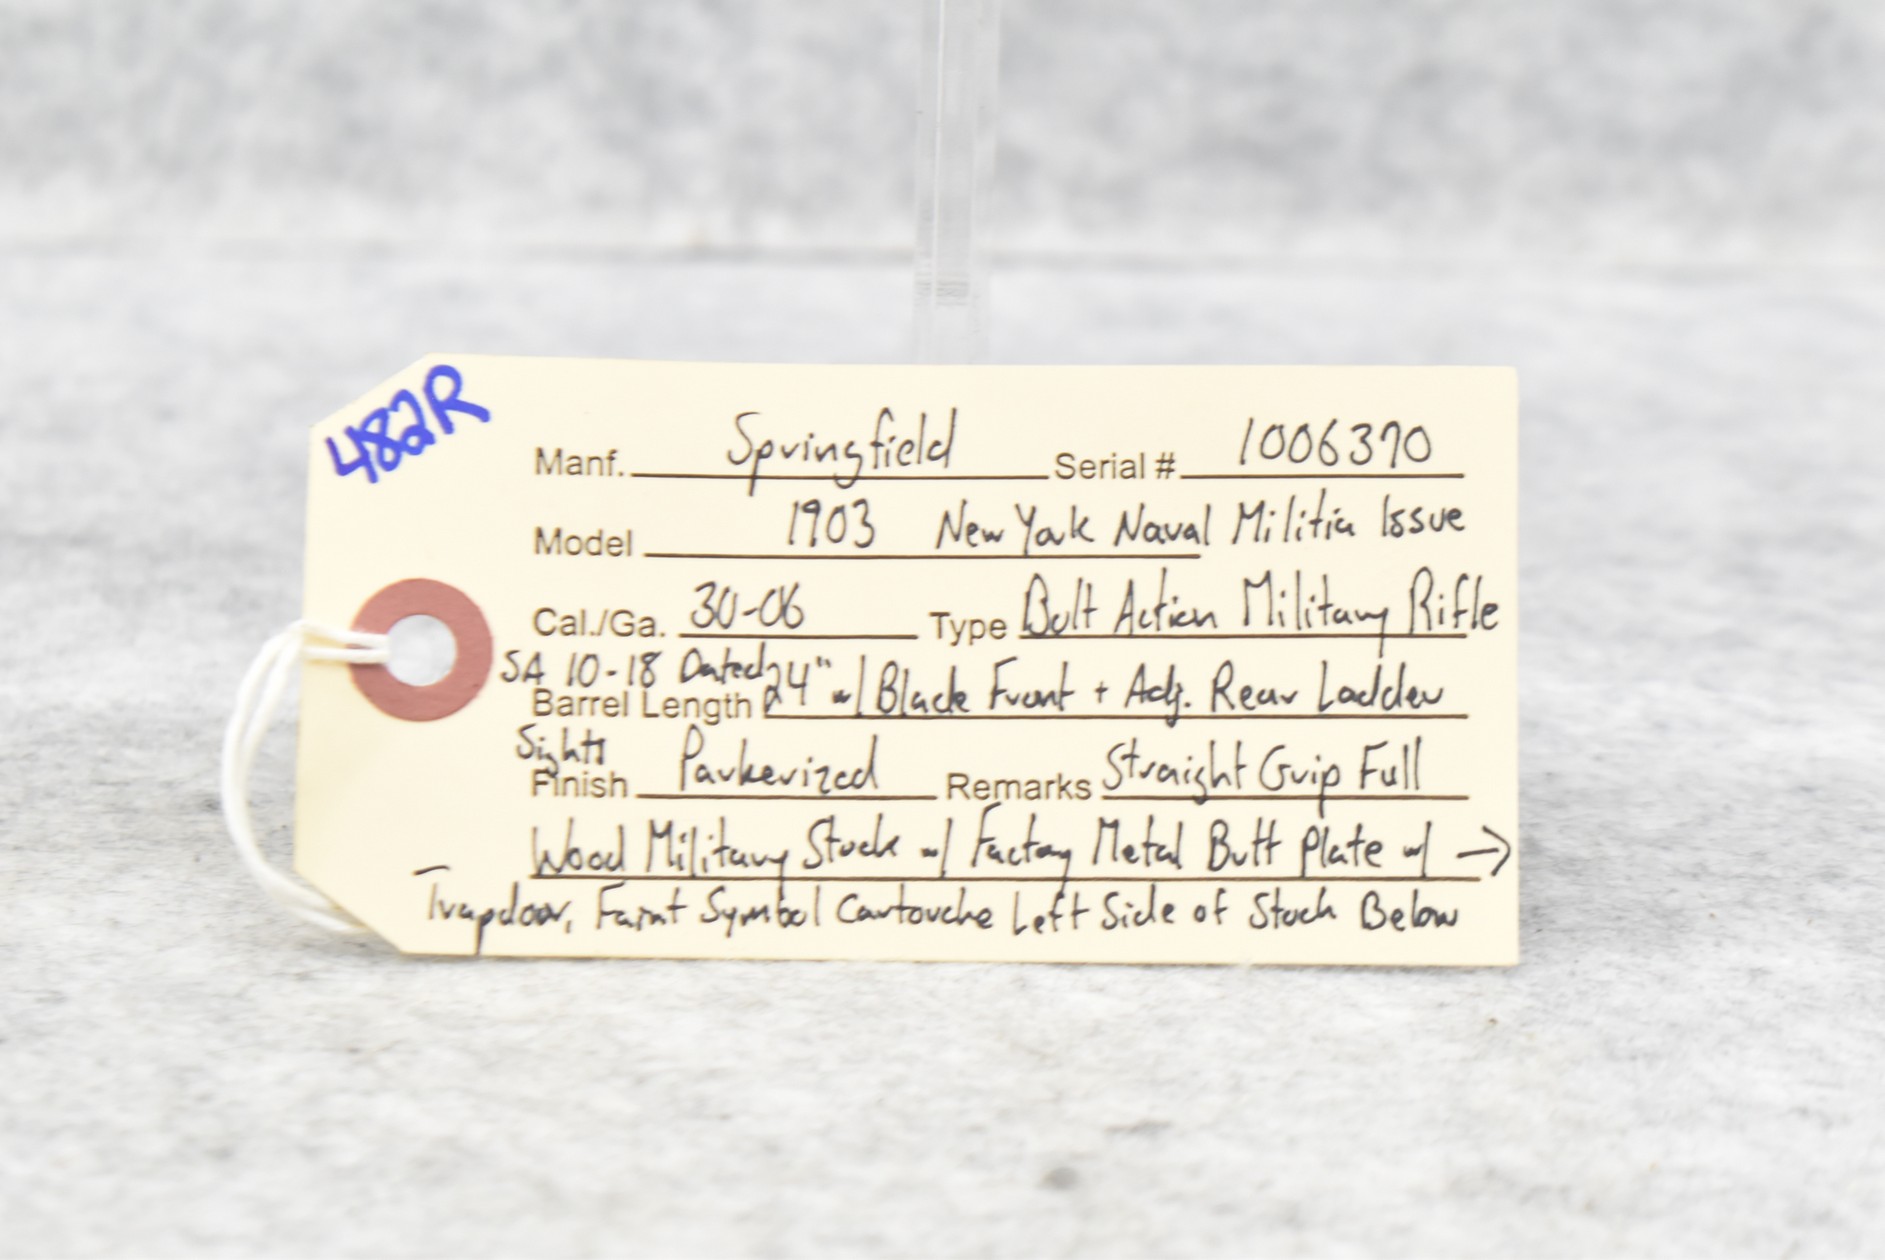 482R
Manf. Springfield Serial # 1006370
Model 1903 New York Naval Militia Issue
Cal./Ga. 30-06 Type Bolt Action Military Rifle
SA 10-18 Dated
Barrel Length 24" w/ Blade Front + Adj. Rear Ladder
Sights
Finish Parkerized Remarks Straight Grip Full
Wood Military Stock w/ Factory Metal Butt Plate w/ →
Trapdoor, Faint Symbol Cartouche Left Side of Stock Below